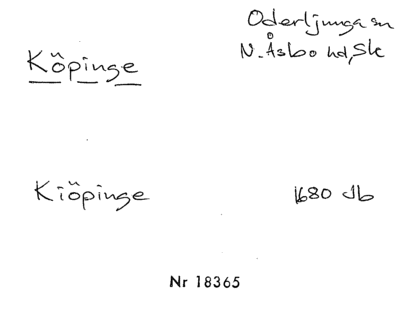 Oderljunga sn
Köpinge
N. Åsbo hd, Sk
Kiöpinge
1680 Jb
Nr 18365